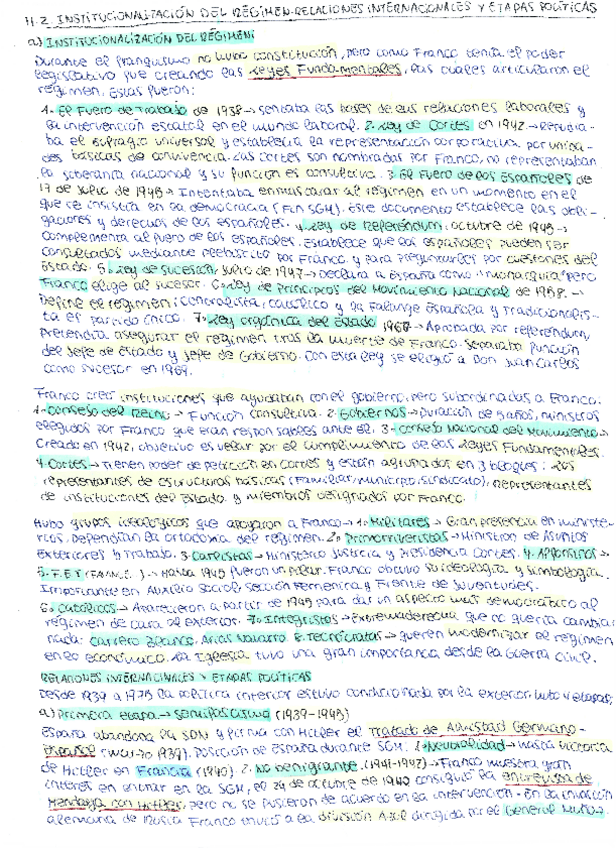 11.2 INSTITUCIONALIZACIÓN DEL RÉGIMEN-RELACIONES INTERNACIONALES Y ETAPAS POLÍTICAS
a) INSTITUCIONALIZACIÓN DEL RÉGIMEN:
Durante el franquismo no hubo constitución, pero como Franco tenía el poder
legislativo fue creando las Leyes Fundamentales, las cuales articularon el
régimen. Estas fueron:
1- El Fuero de Trabajo de 1938→ sentaba las bases de las relaciones laborales y
la intervención estatal en el mundo laboral. 2. Ley de Cortes en 1942→ repudia-
ba el sufragio universal y establecía la representación corporativa por unida-
des básicas de convivencia. Las cortes son nombradas por Franco, no representaban
la soberanía nacional y su función es consultiva. 3. El Fuero de los Españoles de
17 de Julio de 1945→ Intentaba enmascarar al régimen en un momento en el
que se insistía en la democracia (Fin SGM). Este documento establece las obli-
gaciones y derechos de los españoles. 4. Ley de Referéndum, octubre de 1945→
complementa al fuero de los españoles. Establece que los españoles pueden ser
consultados mediante plebiscito por Franco y para preguntarles por cuestiones del
Estado. 5. Ley de Sucesión, Julio de 1947→ Declara a España como "monarquía" pero
Franco elige al sucesor. 6. Ley de Principios del Movimiento Nacional de 1958.→
Define el régimen: centralista, católico y la Falange Española y Tradicionalis-
ta el partido único. 7→ Ley orgánica del Estado 1967→ Aprobada por referéndum,
pretendía asegurar el régimen tras la muerte de Franco. Separaba función
del Jefe de Estado y Jefe de Gobierno. Con esta ley se eligió a Don Juan Carlos
como sucesor en 1969.
Franco creó instituciones que ayudaban con el gobierno, pero subordinados a Franco:
1- Consejo del Reino→ Función consultiva. 2. Gobiernos→ Duración de 5 años, ministros
elegidos por Franco que eran responsables ante él. 3- Consejo Nacional del Movimiento→
Creado en 1942, objetivo es velar por el cumplimiento de las Leyes Fundamentales.
4- Cortes→ Tienen poder de petición en Cortes y están agrupados en 3 bloques: los
representantes de estructuras básicas (familiar, municipio, sindicato), representantes
de instituciones del Estado y miembros designados por Franco.
Hubo grupos ideológicos que apoyaron a Franco→ 1. Militares→ Gran presencia en ministe-
rios. Defendían la ortodoxia del régimen. 2. Primorriveristas→ Ministros de Asuntos
Exteriores y Trabajo. 3. Carlistas→ Ministerio Justicia y Presidencia Cortes. 4. Alfonsinos→
5. F.E.T (FALANGE)→ Hasta 1945 fueron un pilar. Franco obtuvo su ideología y simbología.
Importante en Auxilio Social, Sección Femenina y Frente de Juventudes.
6. Católicos→ Aparecieron a partir de 1945 para dar un aspecto más democrático al
régimen de cara al exterior. 7. Integristas→ Extremaderecha que no quería cambiar
nada: Carrero Blanco, Arias Navarro 8. Tecnócratas→ quieren modernizar el régimen
en lo económico. La Iglesia tuvo una gran importancia desde la Guerra Civil.
RELACIONES INTERNACIONALES Y ETAPAS POLÍTICAS
Desde 1939 a 1975 la política interior estuvo condicionada por la exterior. Hubo etapas:
a) Primera etapa→ semifascista (1939-1945)
España abandona la SDN y firma con Hitler el Tratado de Amistad Germano-
Español (marzo 1939). Posición de España durante SGM: 1. Neutralidad→ hasta victoria
de Hitler en Francia (1940) 2. No beligerante (1941-1942)→ Franco muestra gran
interés en entrar en la SGM, el 24 de octubre de 1940 consiguió la entrevista de
Hendaya con Hitler, pero no se pusieron de acuerdo en la intervención. En la invasión
alemana de Rusia Franco envió a la División Azul dirigida por el General Muñoz